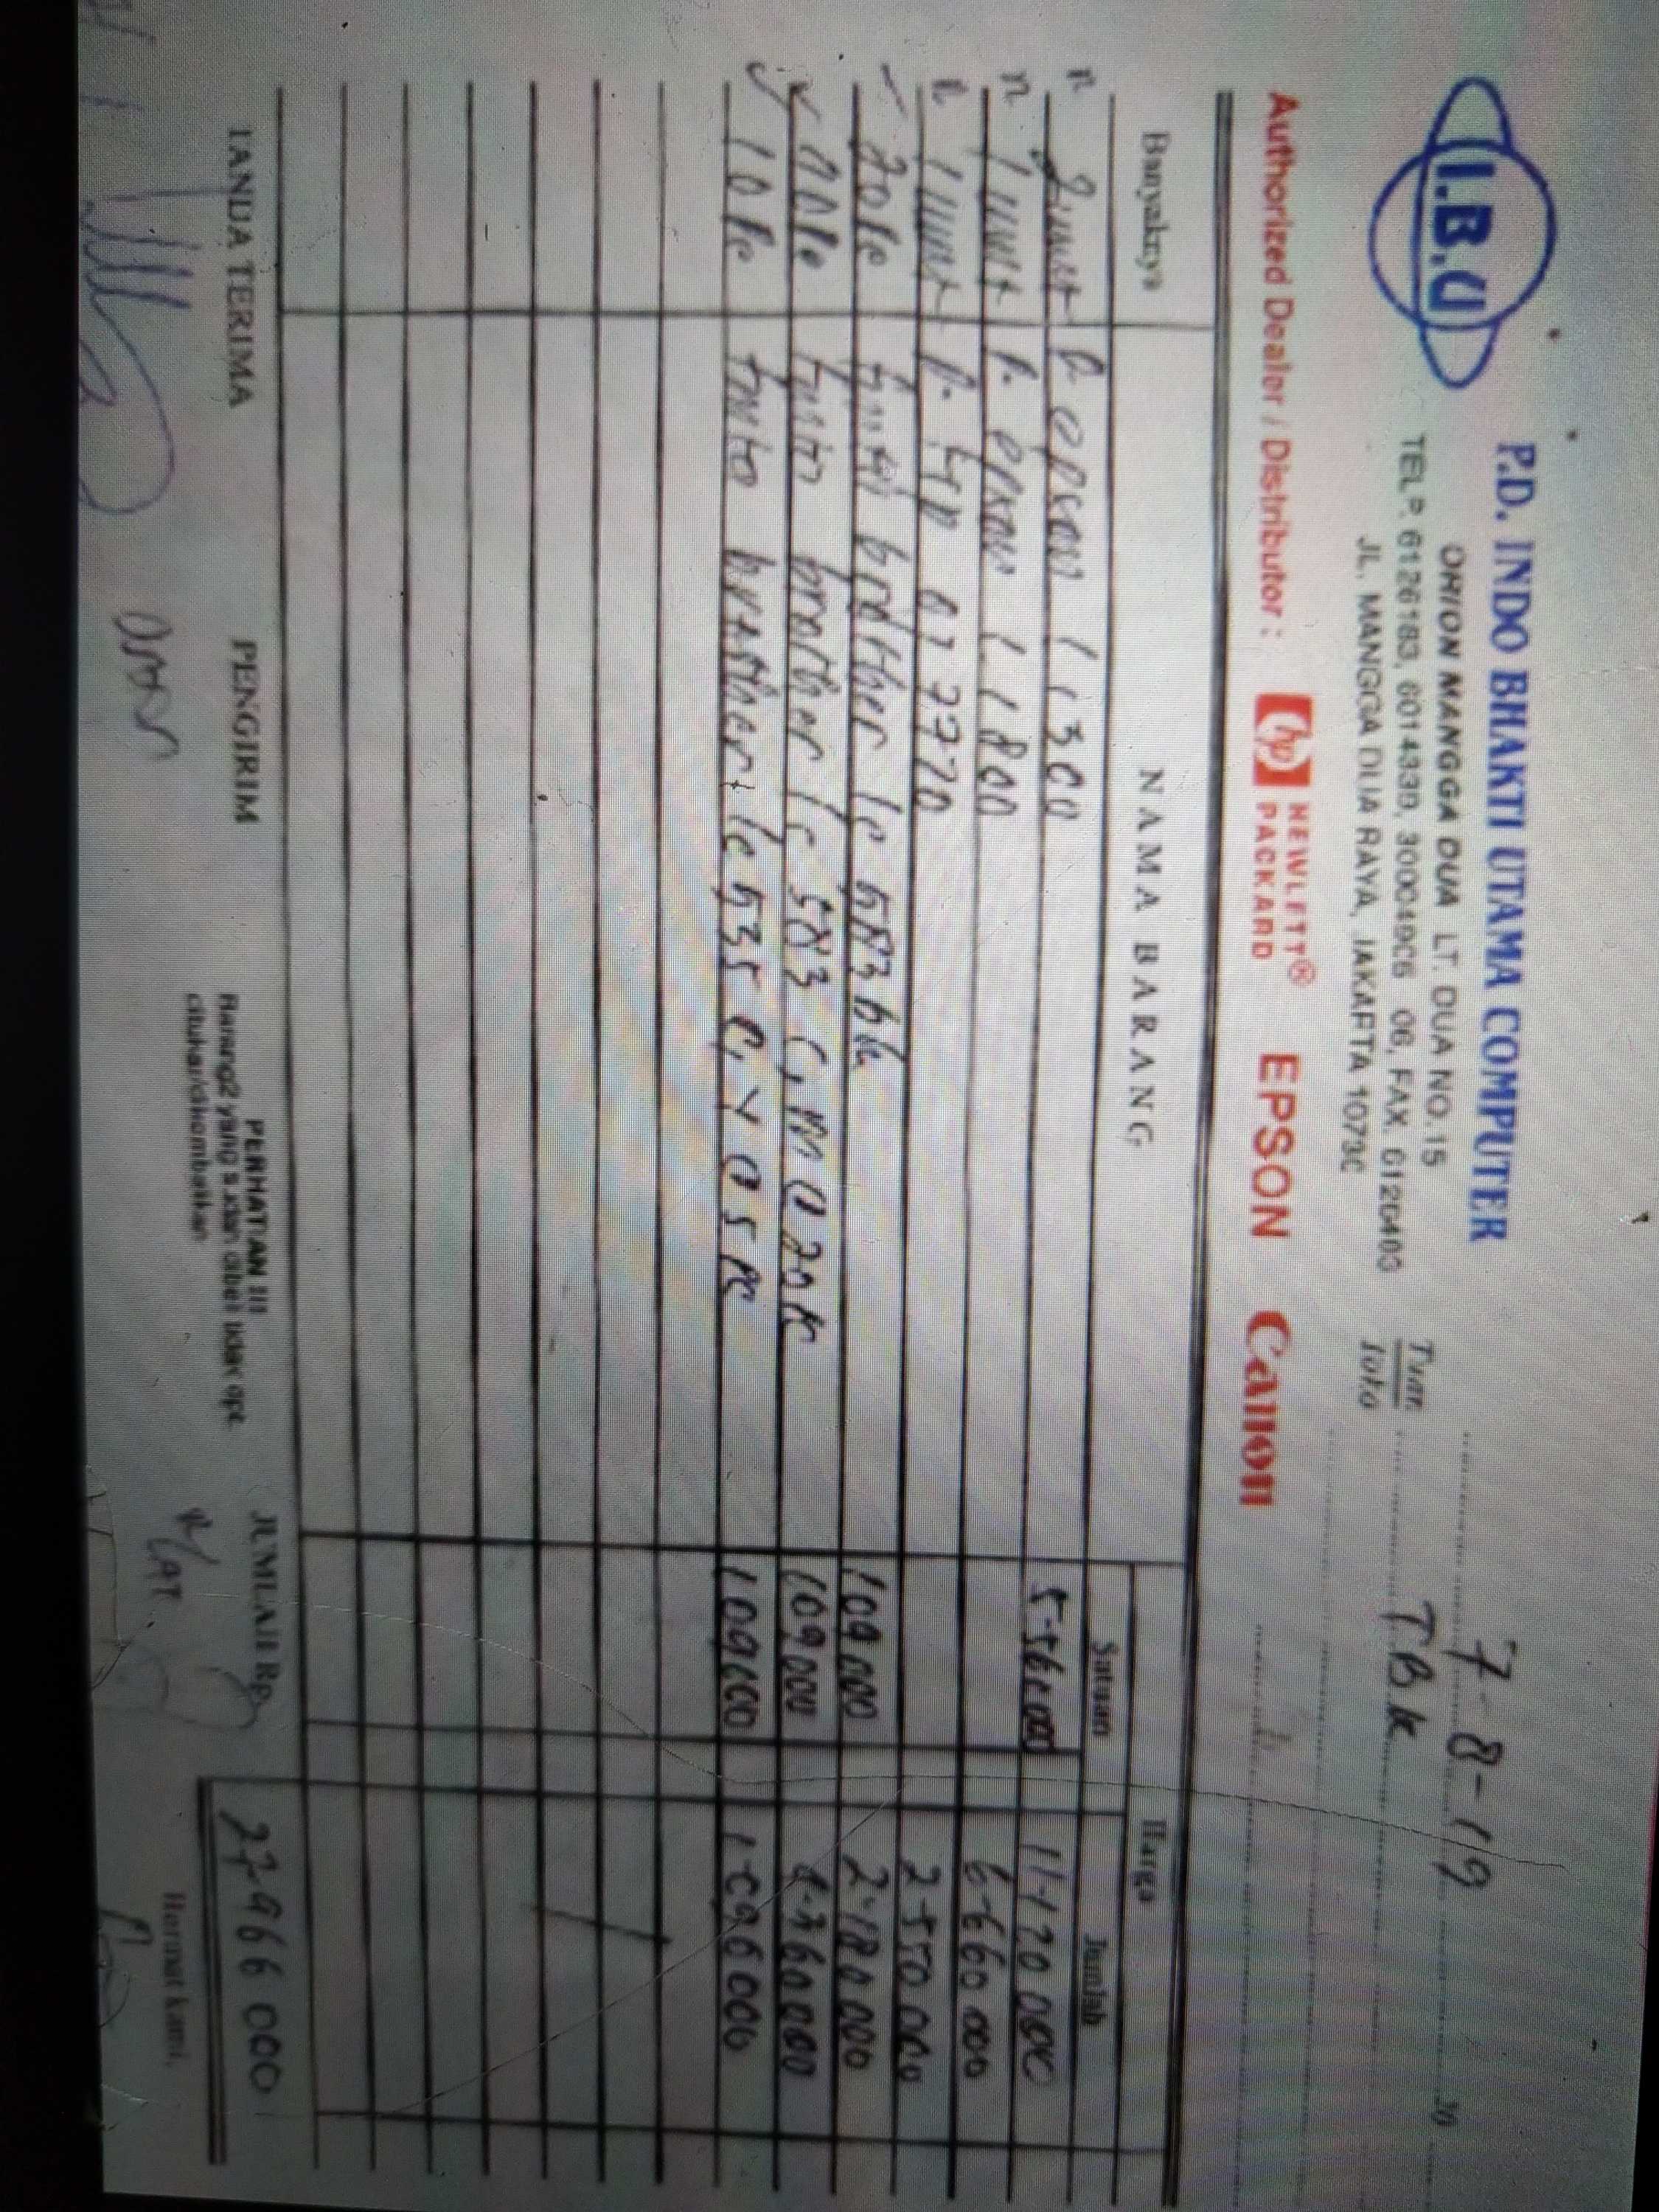 I.B.U
P.D. INDO BHAKTI UTAMA COMPUTER
ORION MANGGA DUA LT. DUA NO.15
TELP. 6126183, 6014339, 30004905 06, FAX. 6120403
JL. MANGGA DUA RAYA, JAKARTA 10730
7-8-19 20
Tuan TBK
Toko
Authorized Dealer / Distributor : hp HEWLETT® PACKARD EPSON Canon
Banyaknya NAMA BARANG Harga
Satuan Jumlah
2 unit P. epson L 1300 5.560.000 11.120.000
1 unit P. epson L 1800 6.660.000
1 unit P. 2.550.000
20 Pc brother lc 583 bk 109.000 2.180.000
brother lc 583 C, M @ 20 109.000 4.360.000
10 Pc brother lc 535 C, Y @ 5 Pc 109.600 1.096.000
TANDA TERIMA PENGIRIM PERHATIAN !!! JUMLAH Rp. 27.966.000
Barang2 yang sudah dibeli tidak dpt.
ditukar/dikembalikan
Hormat kami,